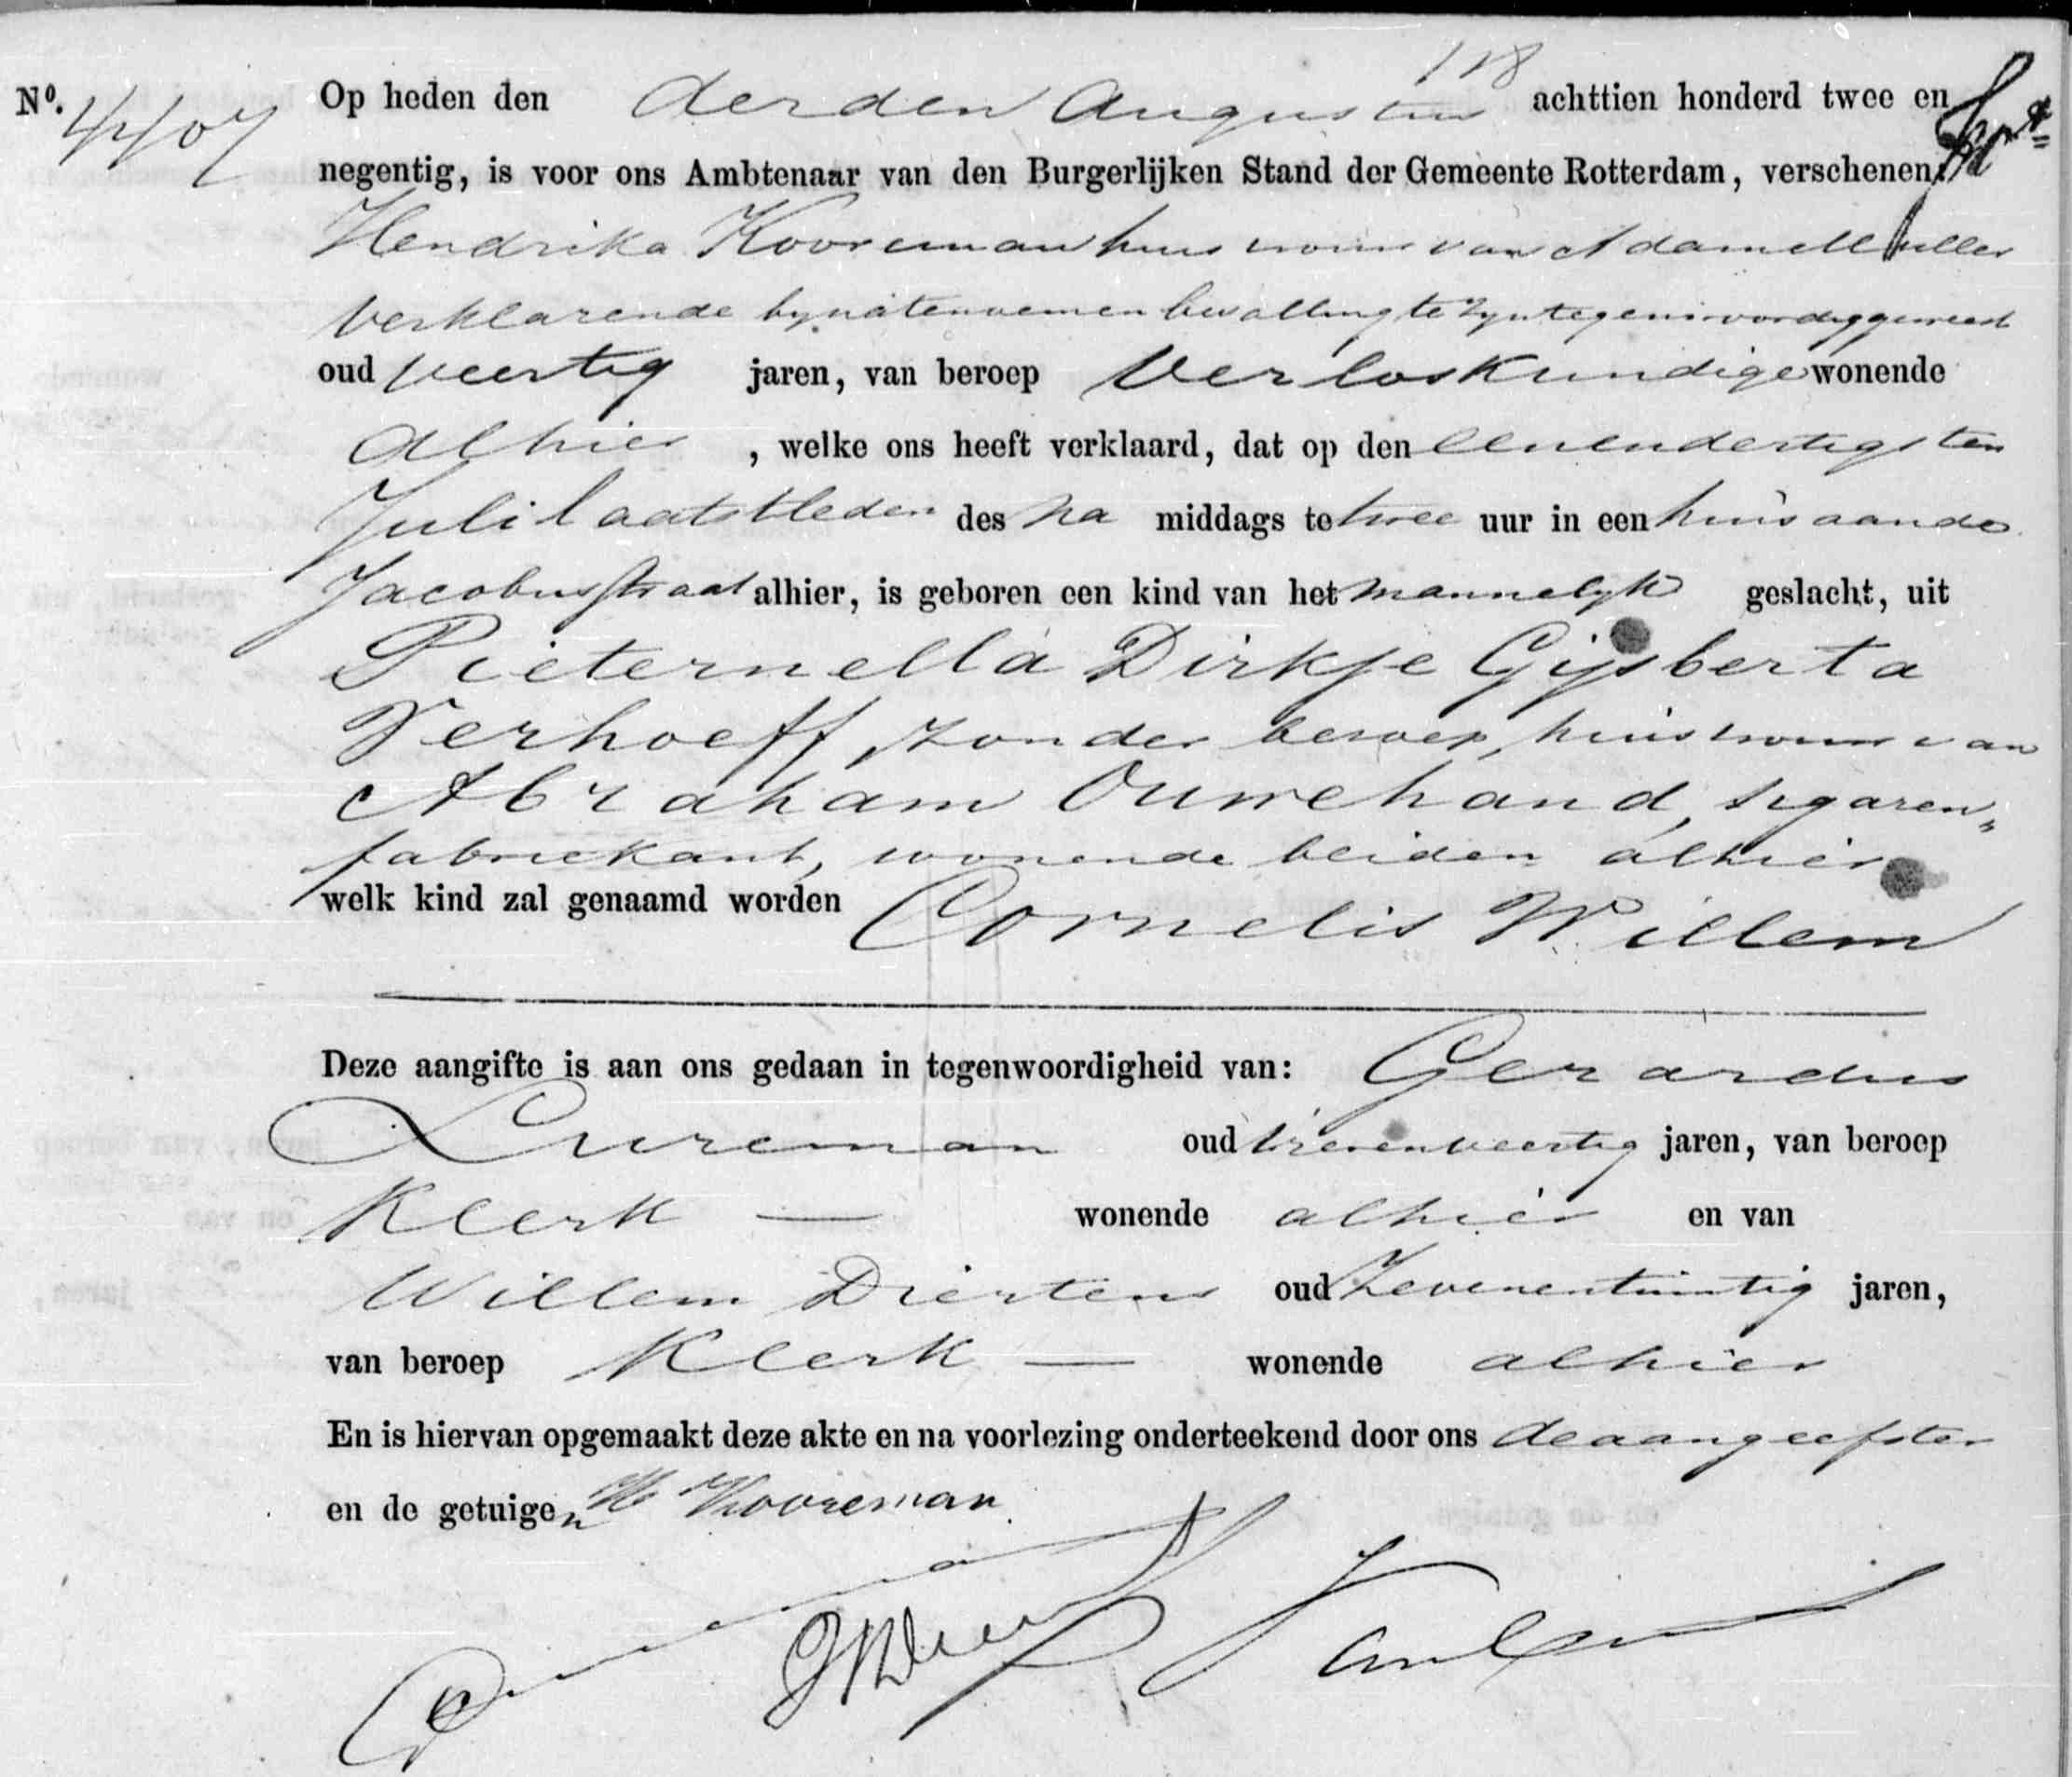 118
Nº. 4407 Op heden den derden Augustus achttien honderd twee en
negentig, is voor ons Ambtenaar van den Burgerlijken Stand der Gemeente Rotterdam, verschenen:
Hendrika Kooreman huisvrouw van Adam Muller
verklarende bij uitenoemen bevalling te zijn tegenwoordig geweest
oud veertig jaren, van beroep Verloskundige wonende
alhier, welke ons heeft verklaard, dat op den eenendertigsten
Juli laatstleden des na middags te twee uur in een huis aan de
Jacobusstraat alhier, is geboren een kind van het mannelijk geslacht, uit
Pieternella Dirkje Gijsberta
Verhoeff, zonder beroep, huisvrouw van
Abraham Ouwehand, sigaren„
fabriekant, wonende beiden alhier
welk kind zal genaamd worden Cornelis Willem
Deze aangifte is aan ons gedaan in tegenwoordigheid van: Gerardus
Lureman oud jaren, van beroep
Klerk — wonende alhier en van
Willem Diertens oud Zevenentwintig jaren,
van beroep Klerk — wonende alhier
En is hiervan opgemaakt deze akte en na voorlezing onderteekend door ons de aangeefster
en de getuigen H Kooreman